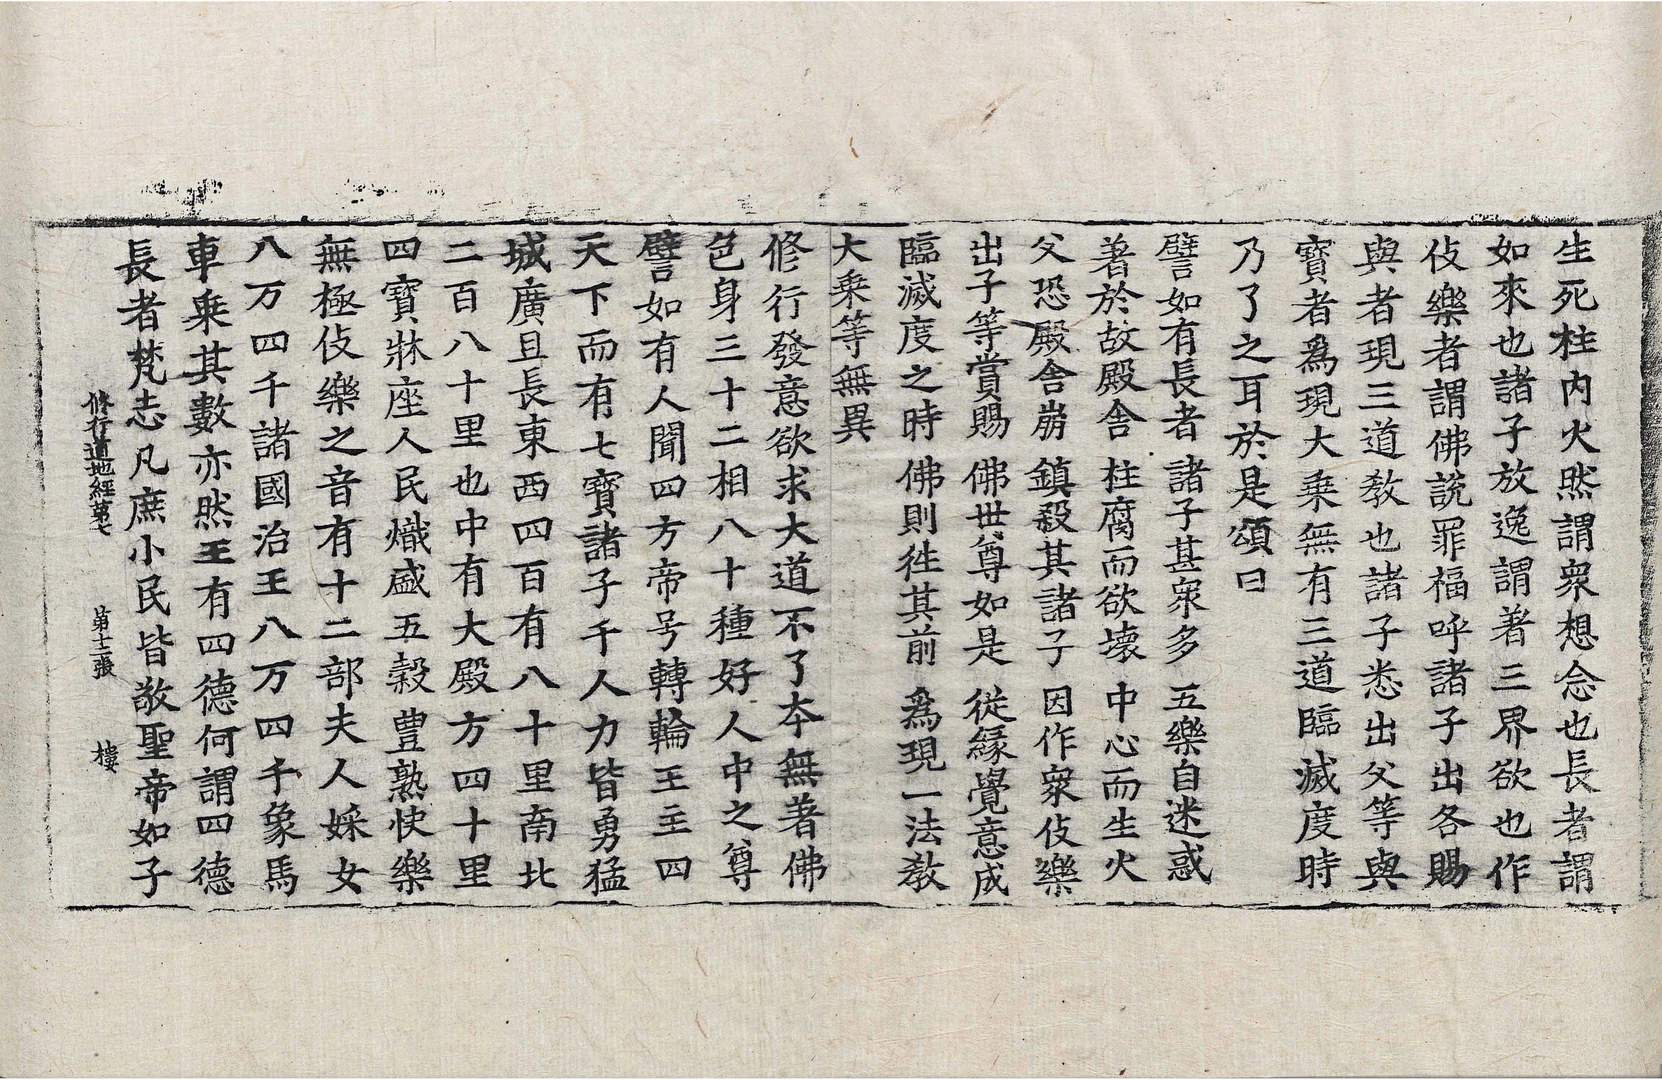 生死柱内火然謂衆想念也長者謂
如來也諸子放逸謂著三界欲也作
伎樂者謂佛說罪福呼諸子出各賜
與者現三道教也諸子悉出父等與
寶者爲現大乘無有三道臨滅度時
乃了之耳於是頌曰
譬如有長者 諸子甚衆多 五樂自迷惑
著於故殿舍 柱腐而欲壞 中心而生火
父恐殿舍崩 鎮殺其諸子 因作衆伎樂
出子等賞賜 佛世尊如是 從緣覺意成
臨滅度之時 佛則往其前 爲現一法教
大乘等無異
修行發意欲求大道不了本無著佛
色身三十二相八十種好人中之尊
譬如有人聞四方帝号轉輪王主四
天下而有七寶諸子千人力皆勇猛
城廣且長東西四百有八十里南北
二百八十里也中有大殿方四十里
四寶牀座人民熾盛五穀豊熟快樂
無極伎樂之音有十二部夫人婇女
八万四千諸國治王八万四千象馬
車乘其數亦然王有四德何謂四德
長者梵志凡庶小民皆敬聖帝如子
修行道地經第七 第十二張 樓